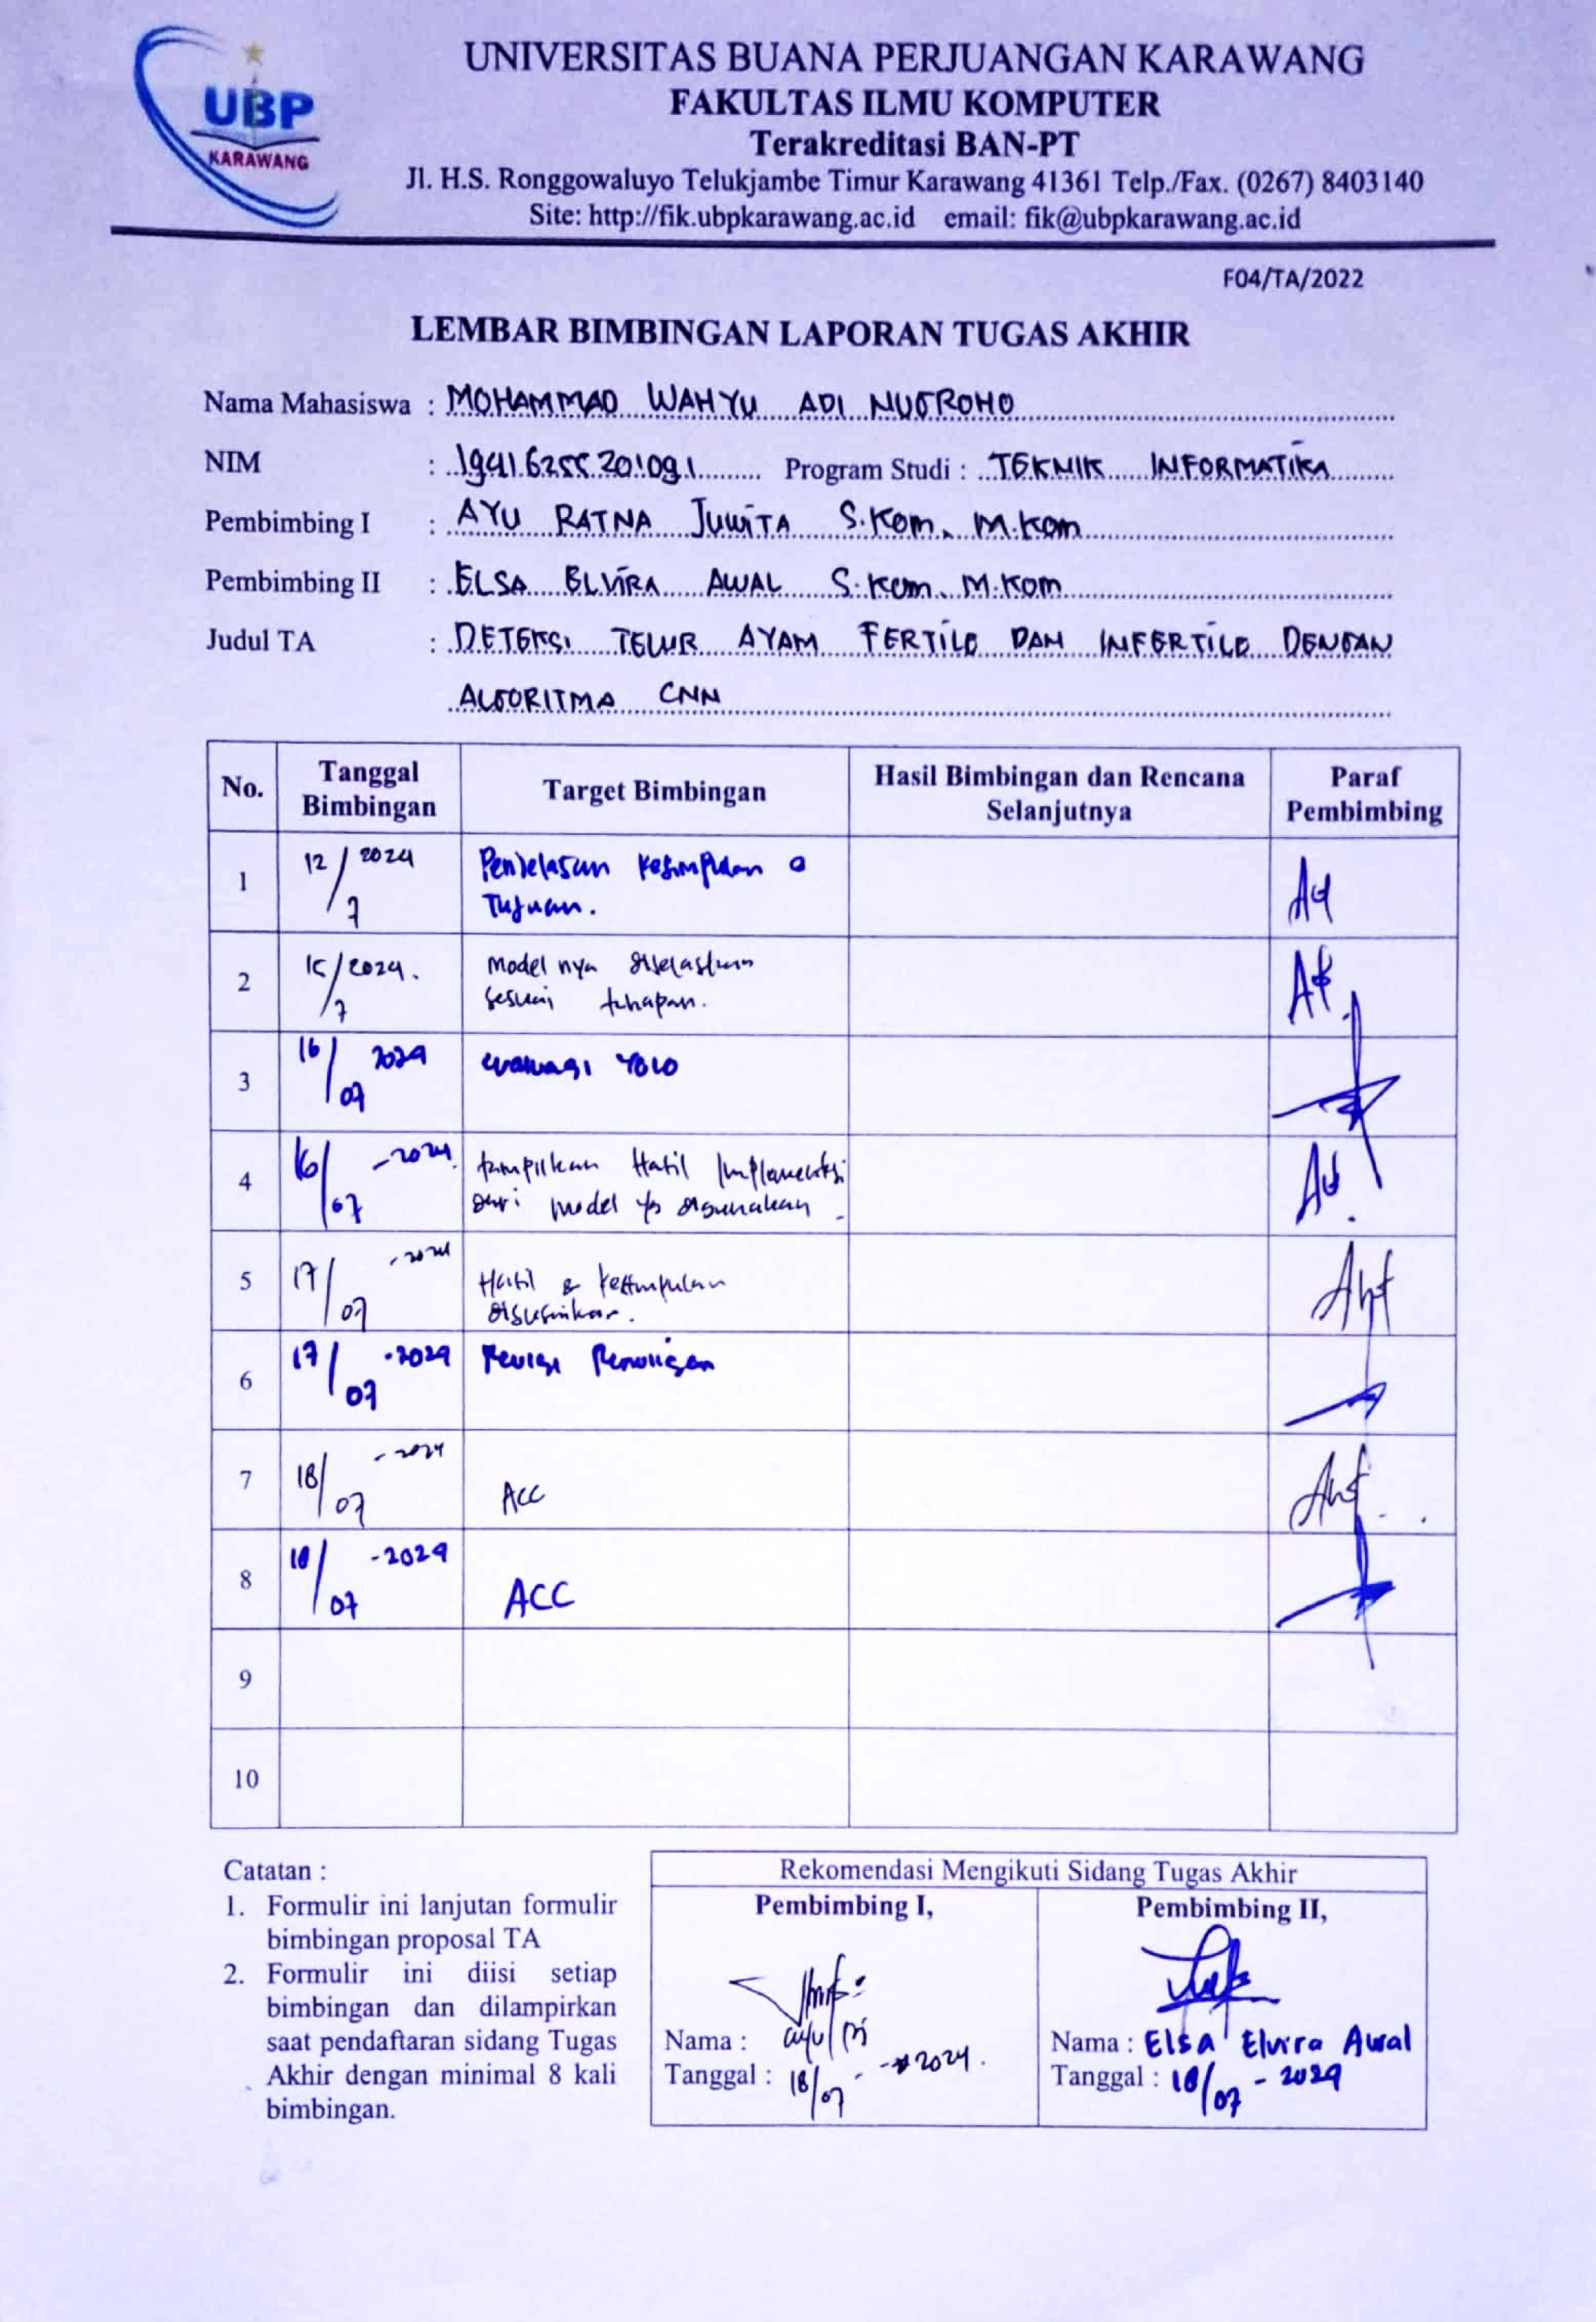 UBP
KARAWANG
UNIVERSITAS BUANA PERJUANGAN KARAWANG
FAKULTAS ILMU KOMPUTER
Terakreditasi BAN-PT
Jl. H.S. Ronggowaluyo Telukjambe Timur Karawang 41361 Telp./Fax. (0267) 8403140
Site: http://fik.ubpkarawang.ac.id email: fik@ubpkarawang.ac.id
F04/TA/2022
LEMBAR BIMBINGAN LAPORAN TUGAS AKHIR
Nama Mahasiswa : MOHAMMAD WAHYU ADI NUGROHO
NIM : 19416255201091 Program Studi : TEKNIK INFORMATIKA
Pembimbing I : AYU RATNA JUWITA S.Kom, M.Kom
Pembimbing II : ELSA ELVIRA AWAL S.Kom, M.Kom
Judul TA : DETEKSI TELUR AYAM FERTILE DAN INFERTILE DENGAN
ALGORITMA CNN
No. Tanggal Bimbingan Target Bimbingan Hasil Bimbingan dan Rencana Selanjutnya Paraf Pembimbing
1 12/7 2024 Penjelasan Kesimpulan &
Tujuan.
2 15/7 2024. Modelnya dijelaskan
sesuai tahapan.
3 16/07 2024 evaluasi YOLO
4 16/07 -2024. tampilkan Hasil Implementasi
dari model yg digunakan
5 17/07 -2024 Hasil & kesimpulan
disesuaikan.
6 17/07 -2024 Revisi Penulisan
7 18/07 -2024 ACC
8 18/07 -2024 ACC
9
10
Catatan :
1. Formulir ini lanjutan formulir
bimbingan proposal TA
2. Formulir ini diisi setiap
bimbingan dan dilampirkan
saat pendaftaran sidang Tugas
Akhir dengan minimal 8 kali
bimbingan.
Rekomendasi Mengikuti Sidang Tugas Akhir
Pembimbing I,
Nama : ayu
Tanggal : 18/07 - 2024.
Pembimbing II,
Nama : Elsa Elvira Awal
Tanggal : 18/07 - 2024